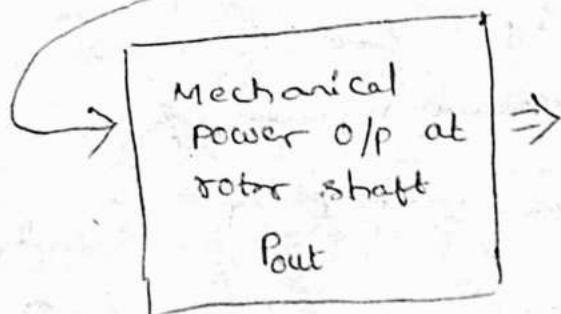 Mechanical
power o/p at
rotor shaft
Pout